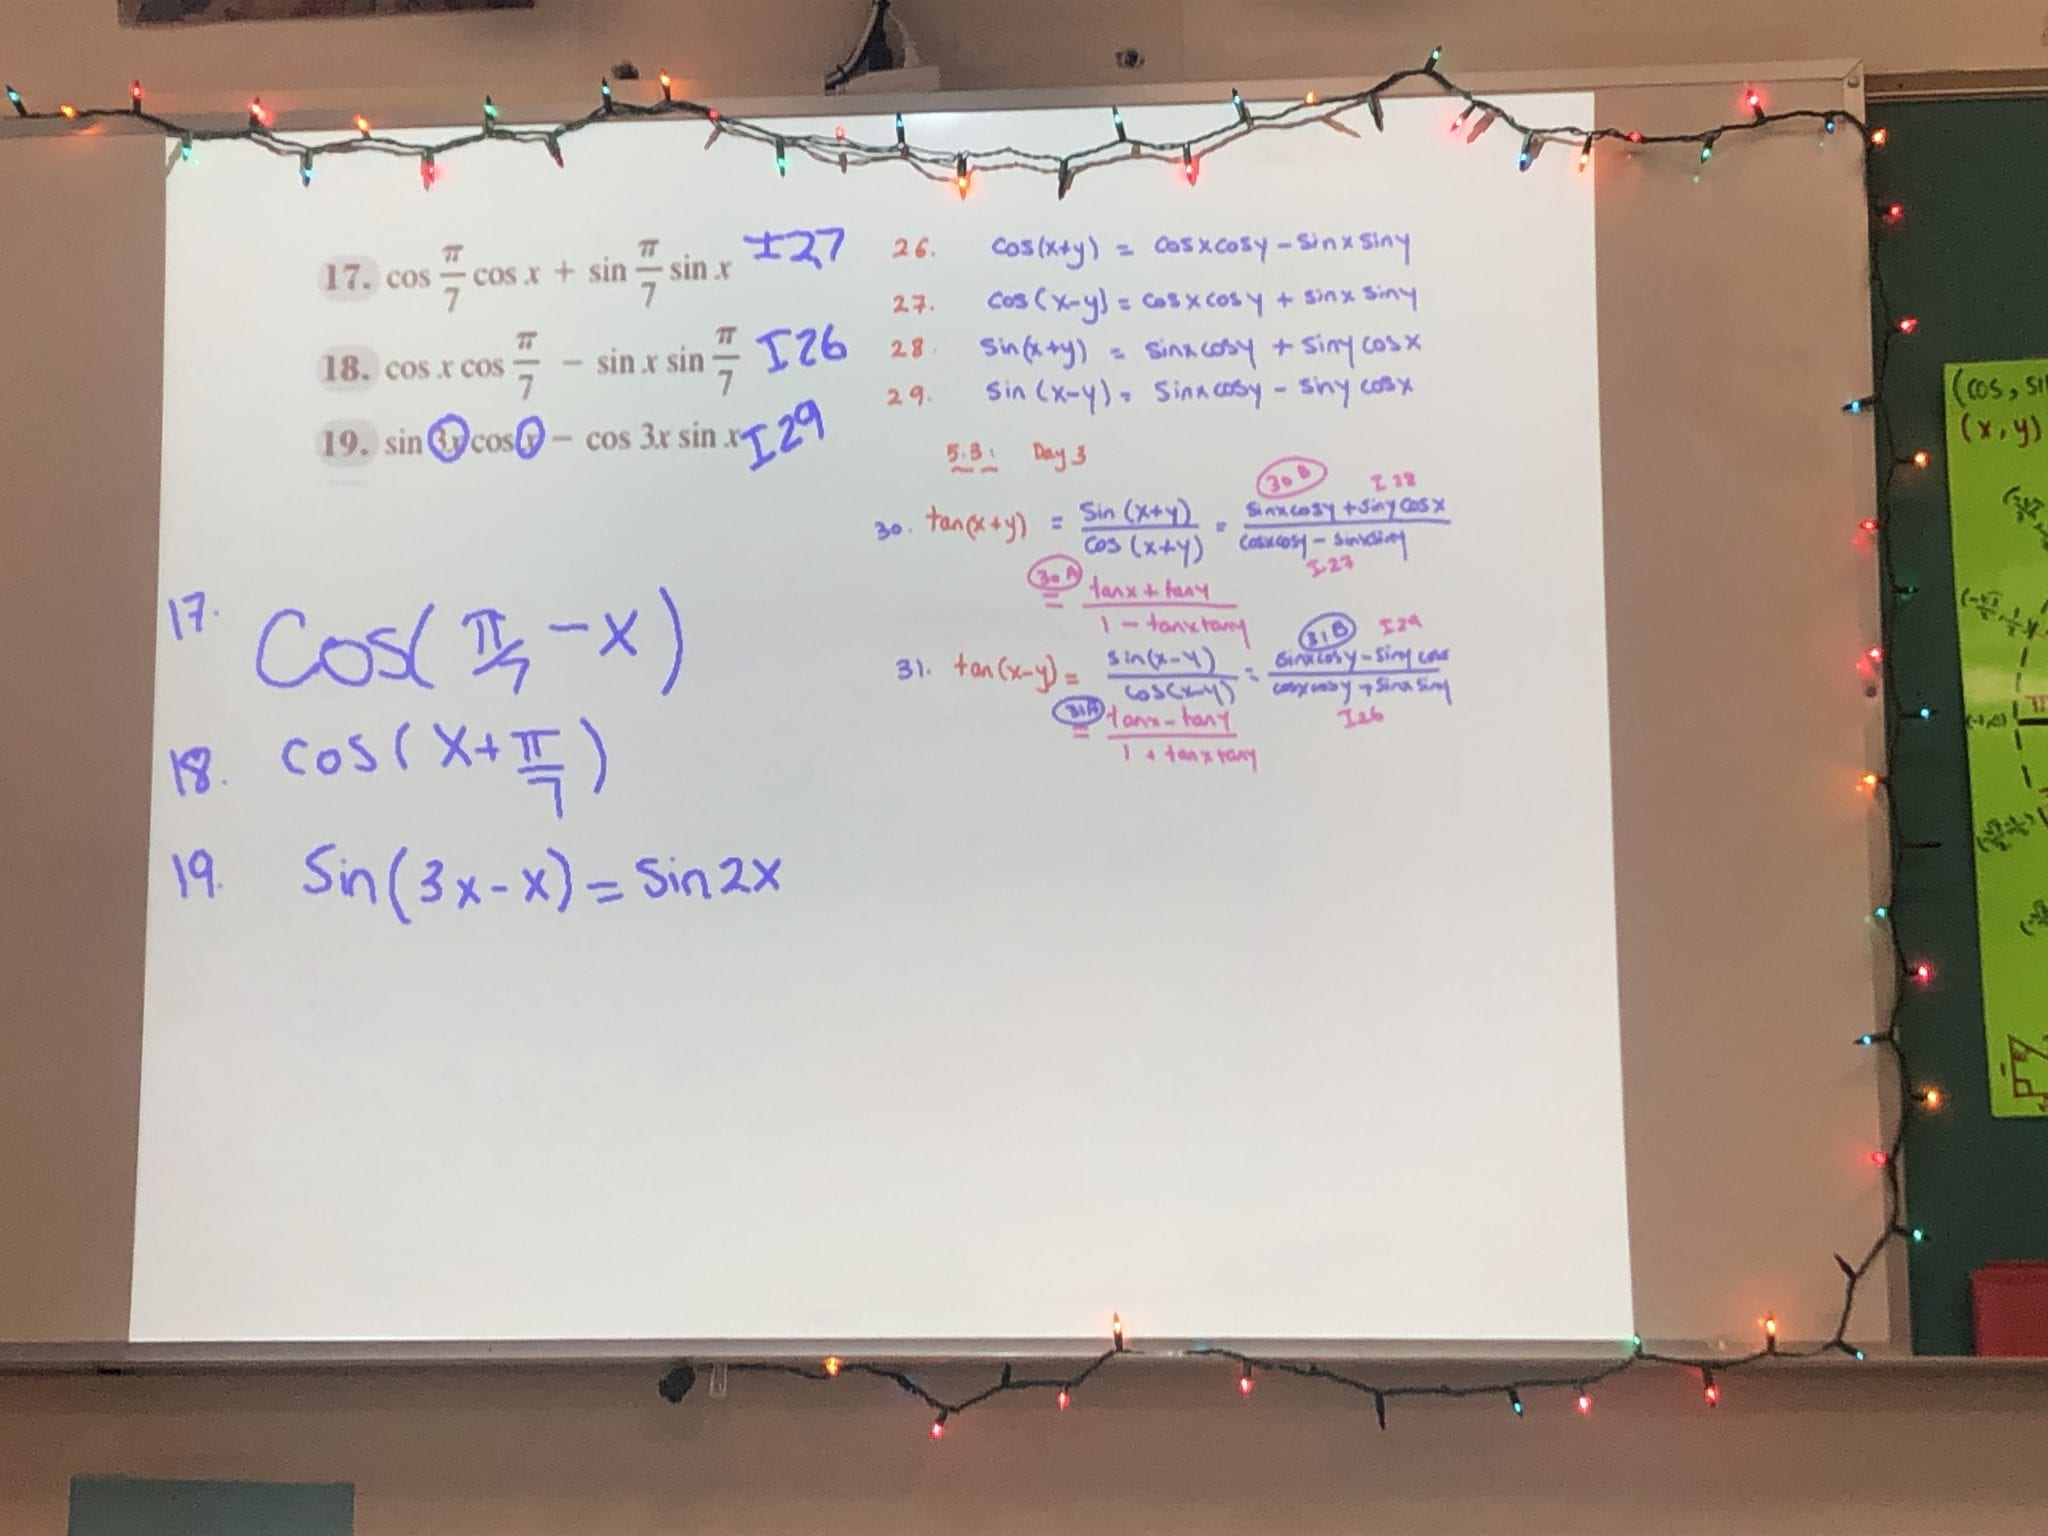 17. cos π/7 cos x + sin π/7 sin x I27
18. cos x cos π/7 − sin x sin π/7 I26
19. sin 3x cos x − cos 3x sin x I29
26. cos(x+y) = cosxcosy − sinx siny
27. cos(x−y) = cosxcosy + sinx siny
28. sin(x+y) = sinxcosy + siny cosx
29. sin(x−y) = sinxcosy − siny cosx
5.3: Day 3
30B I28
30. tan(x+y) = sin(x+y)/cos(x+y) = sinxcosy + siny cosx/cosxcosy − sinxsiny
I27
30A = tanx + tany/1 − tanxtany
31B I29
31. tan(x−y) = sin(x−y)/cos(x−y) = sinxcosy − siny cosx/cosxcosy + sinx siny
I26
31A = tanx − tany/1 + tanxtany
17. Cos(π/7 − x)
18. cos(x + π/7)
19. Sin(3x − x) = Sin 2x
(cos, si
(x, y)